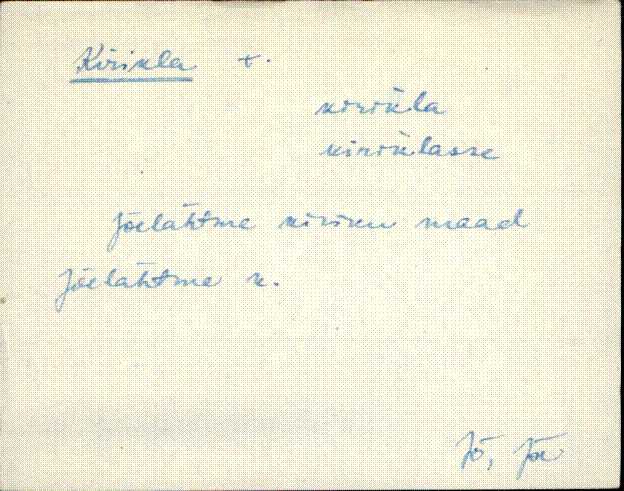 Kirikla t.
kirikla
kiriklasse
Jõelähtme kiriku maad
Jõelähtme k.
Jõ, Jõe